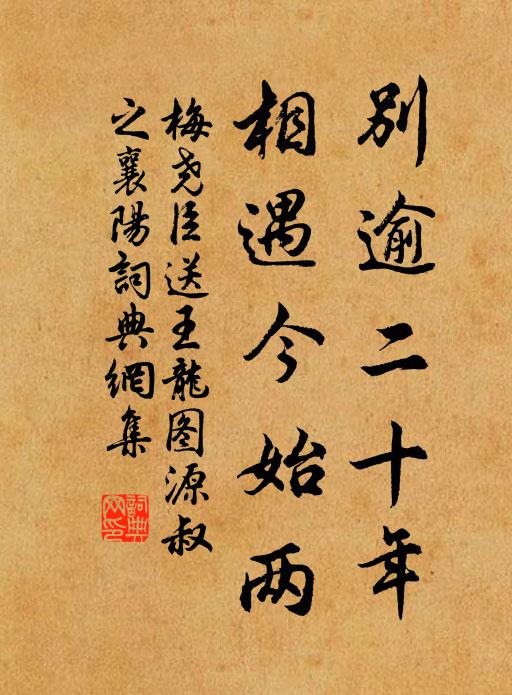 别逾二十年
相遇今始两
梅尧臣送王龍图源叔
之襄陽詞典網集
詞典
网印